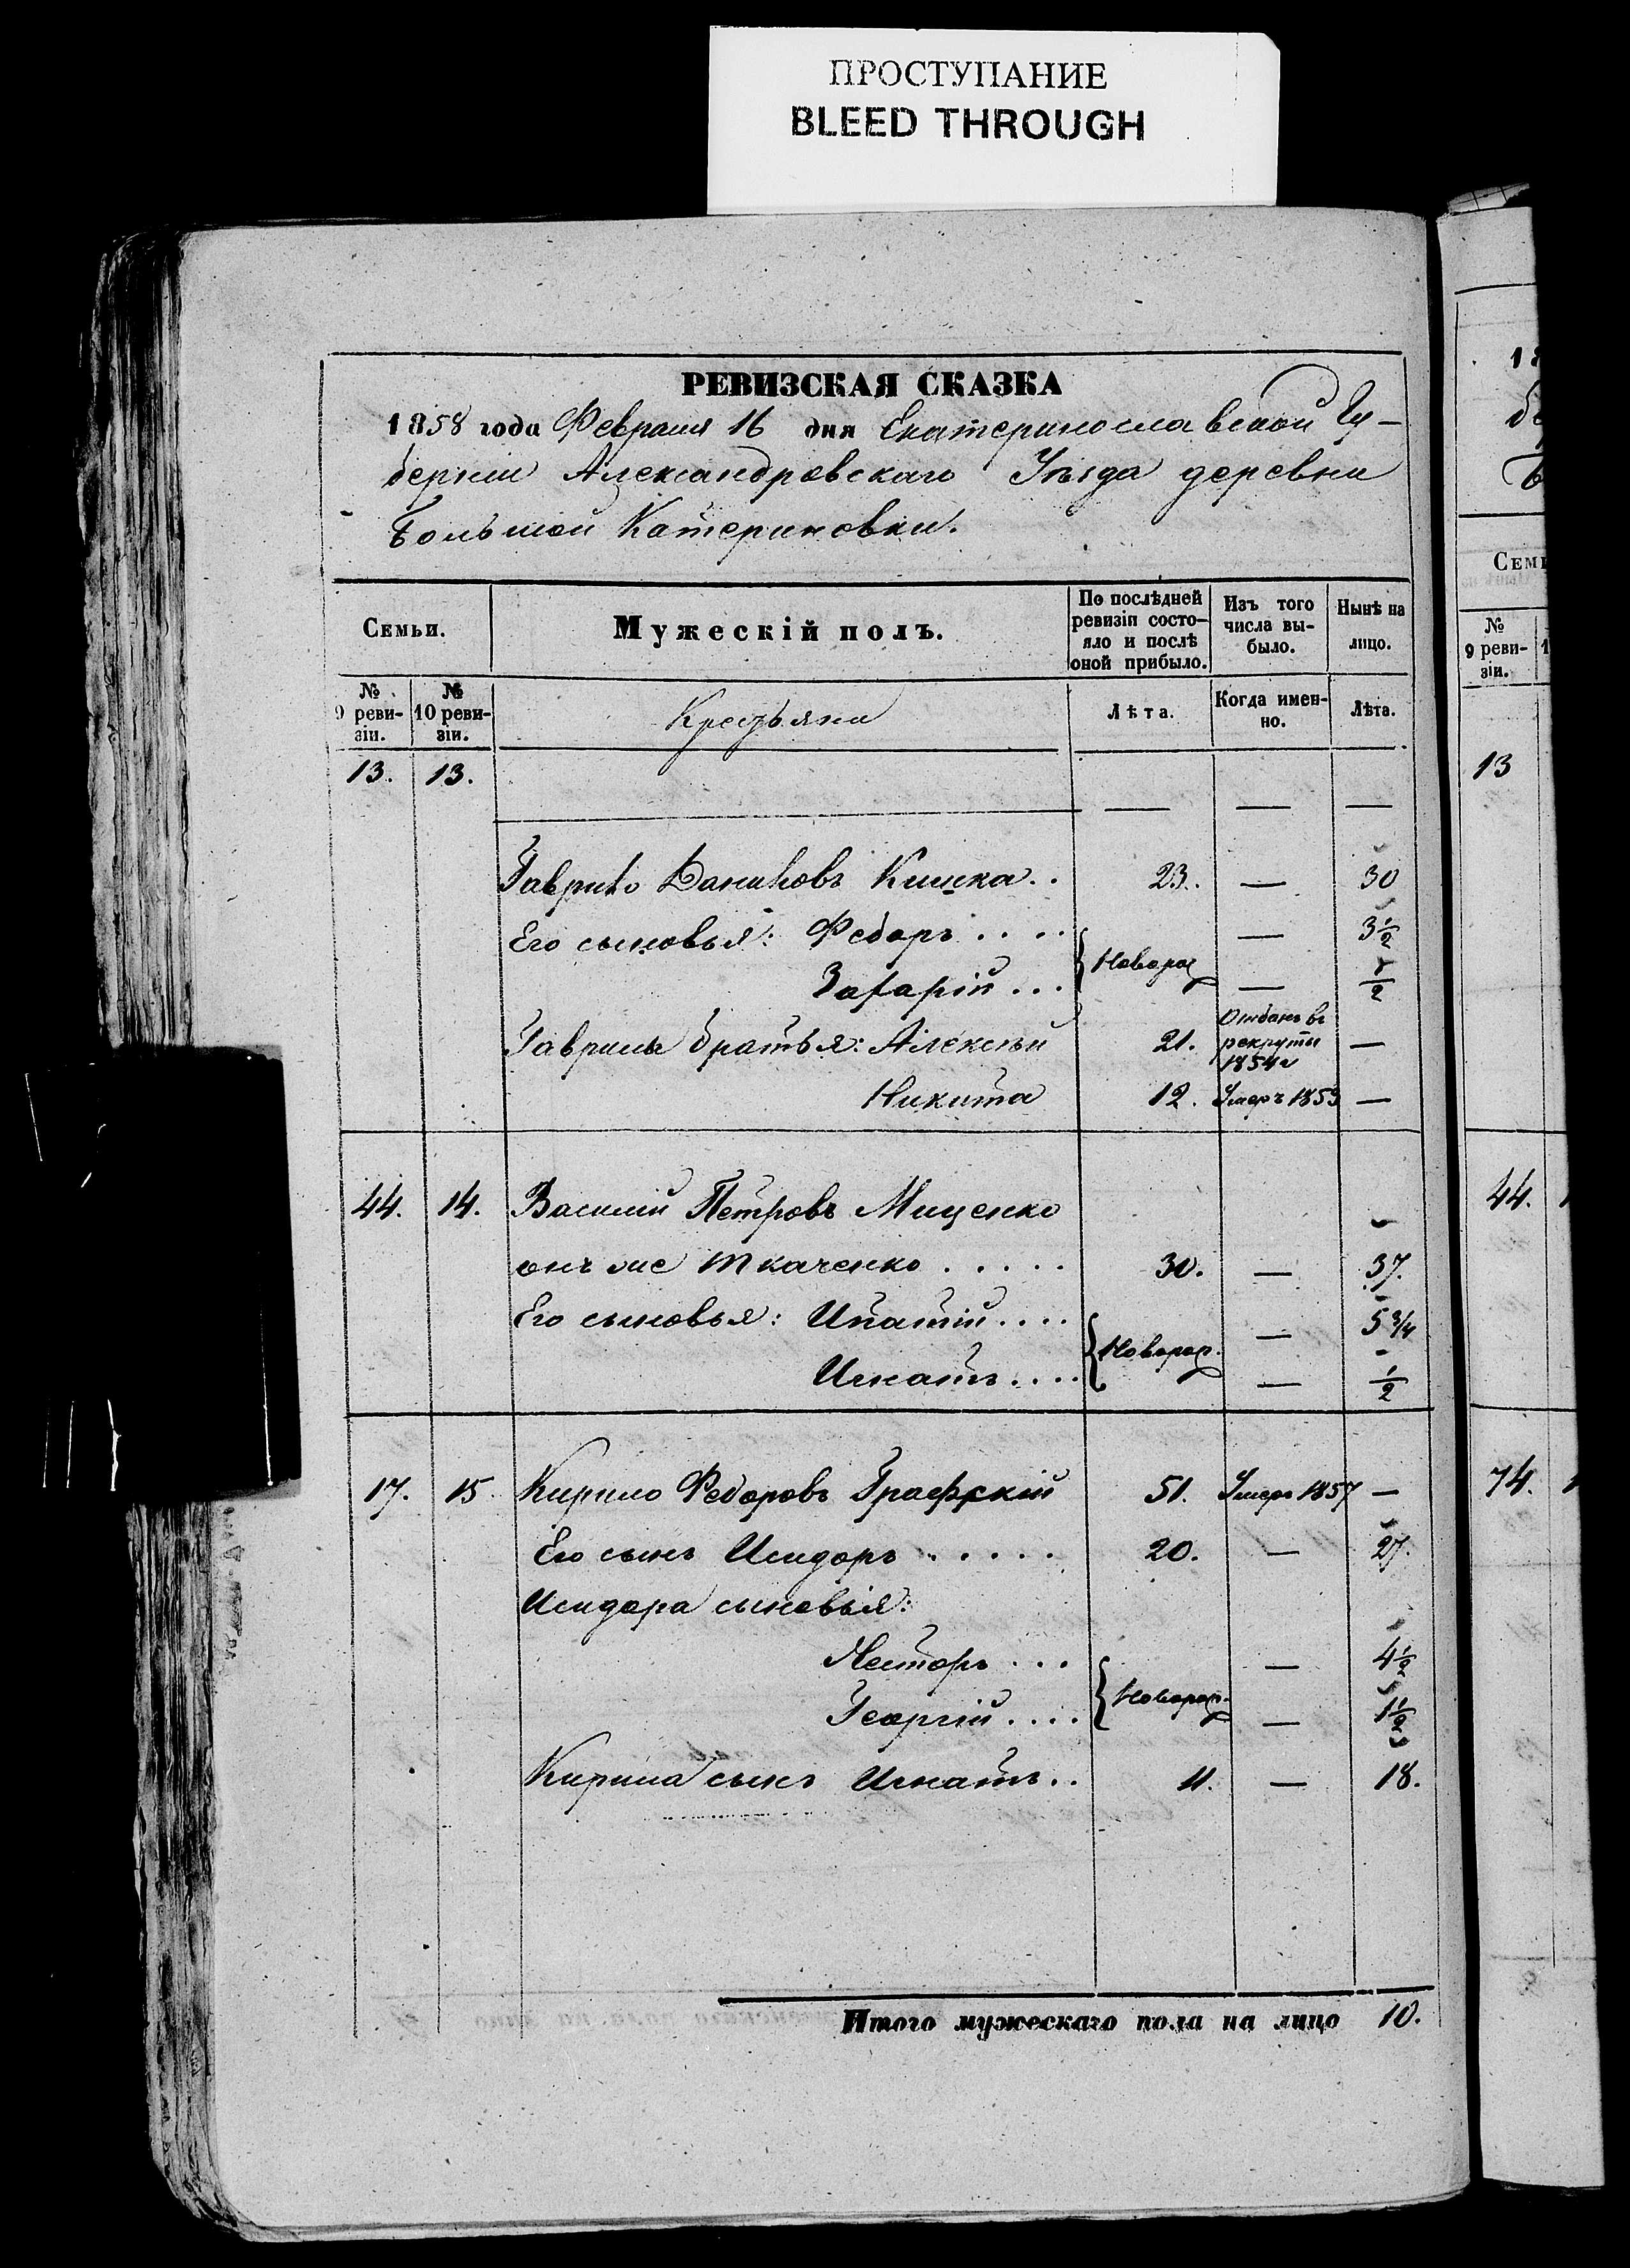 ПРОСТУПАНИЕ
BLEED THROUGH
РЕВИЗСКАЯ СКАЗКА
1858 года Февраля 16 дня Екатеринославской Гу-
берніи Александровскаго Уѣзда деревни
Большой Катериновки.
Семьи.
Мужескій полъ.
По послѣдней ревизіи состо-яло и послѣ оной прибыло.
Изъ того числа вы-было.
Нынѣ на лицо.
№ 9 реви-зіи.
№ 10 реви-зіи.
Крестьяни
Лѣта.
Когда имен-но.
Лѣта.
13. 13.
— — —
Гаврило Даниловъ Кишка.. 23. — 30
Его сыновья: Федоръ.... — 3 1/2
Новорож
Захарій... — 1/2
Гаврила братья: Алексѣй 21. Отданъ въ рекруты 1854 г —
Никита 12. Умеръ 1853 —
44. 14. Василій Петровъ Мищенко
онъ же Ткаченко..... 30. — 37.
Его сыновья: Ипатій.... — 5 3/4
Новорож.
Игнатъ.... — 1/2
17. 15 Кирило Федоровъ Графскій 51. Умеръ 1857 —
Его сынъ Исидоръ..... 20. — 27.
Исидора сыновья:
Несторъ... — 4 1/2
Новорож.
Георгій.... — 1 1/2
Кирила сынъ Игнатъ.. 11. — 18.
Итого мужескаго пола на лицо 10.
18
бе
Б
Семь
№
9 реви-
зіи.
13
44.
74.